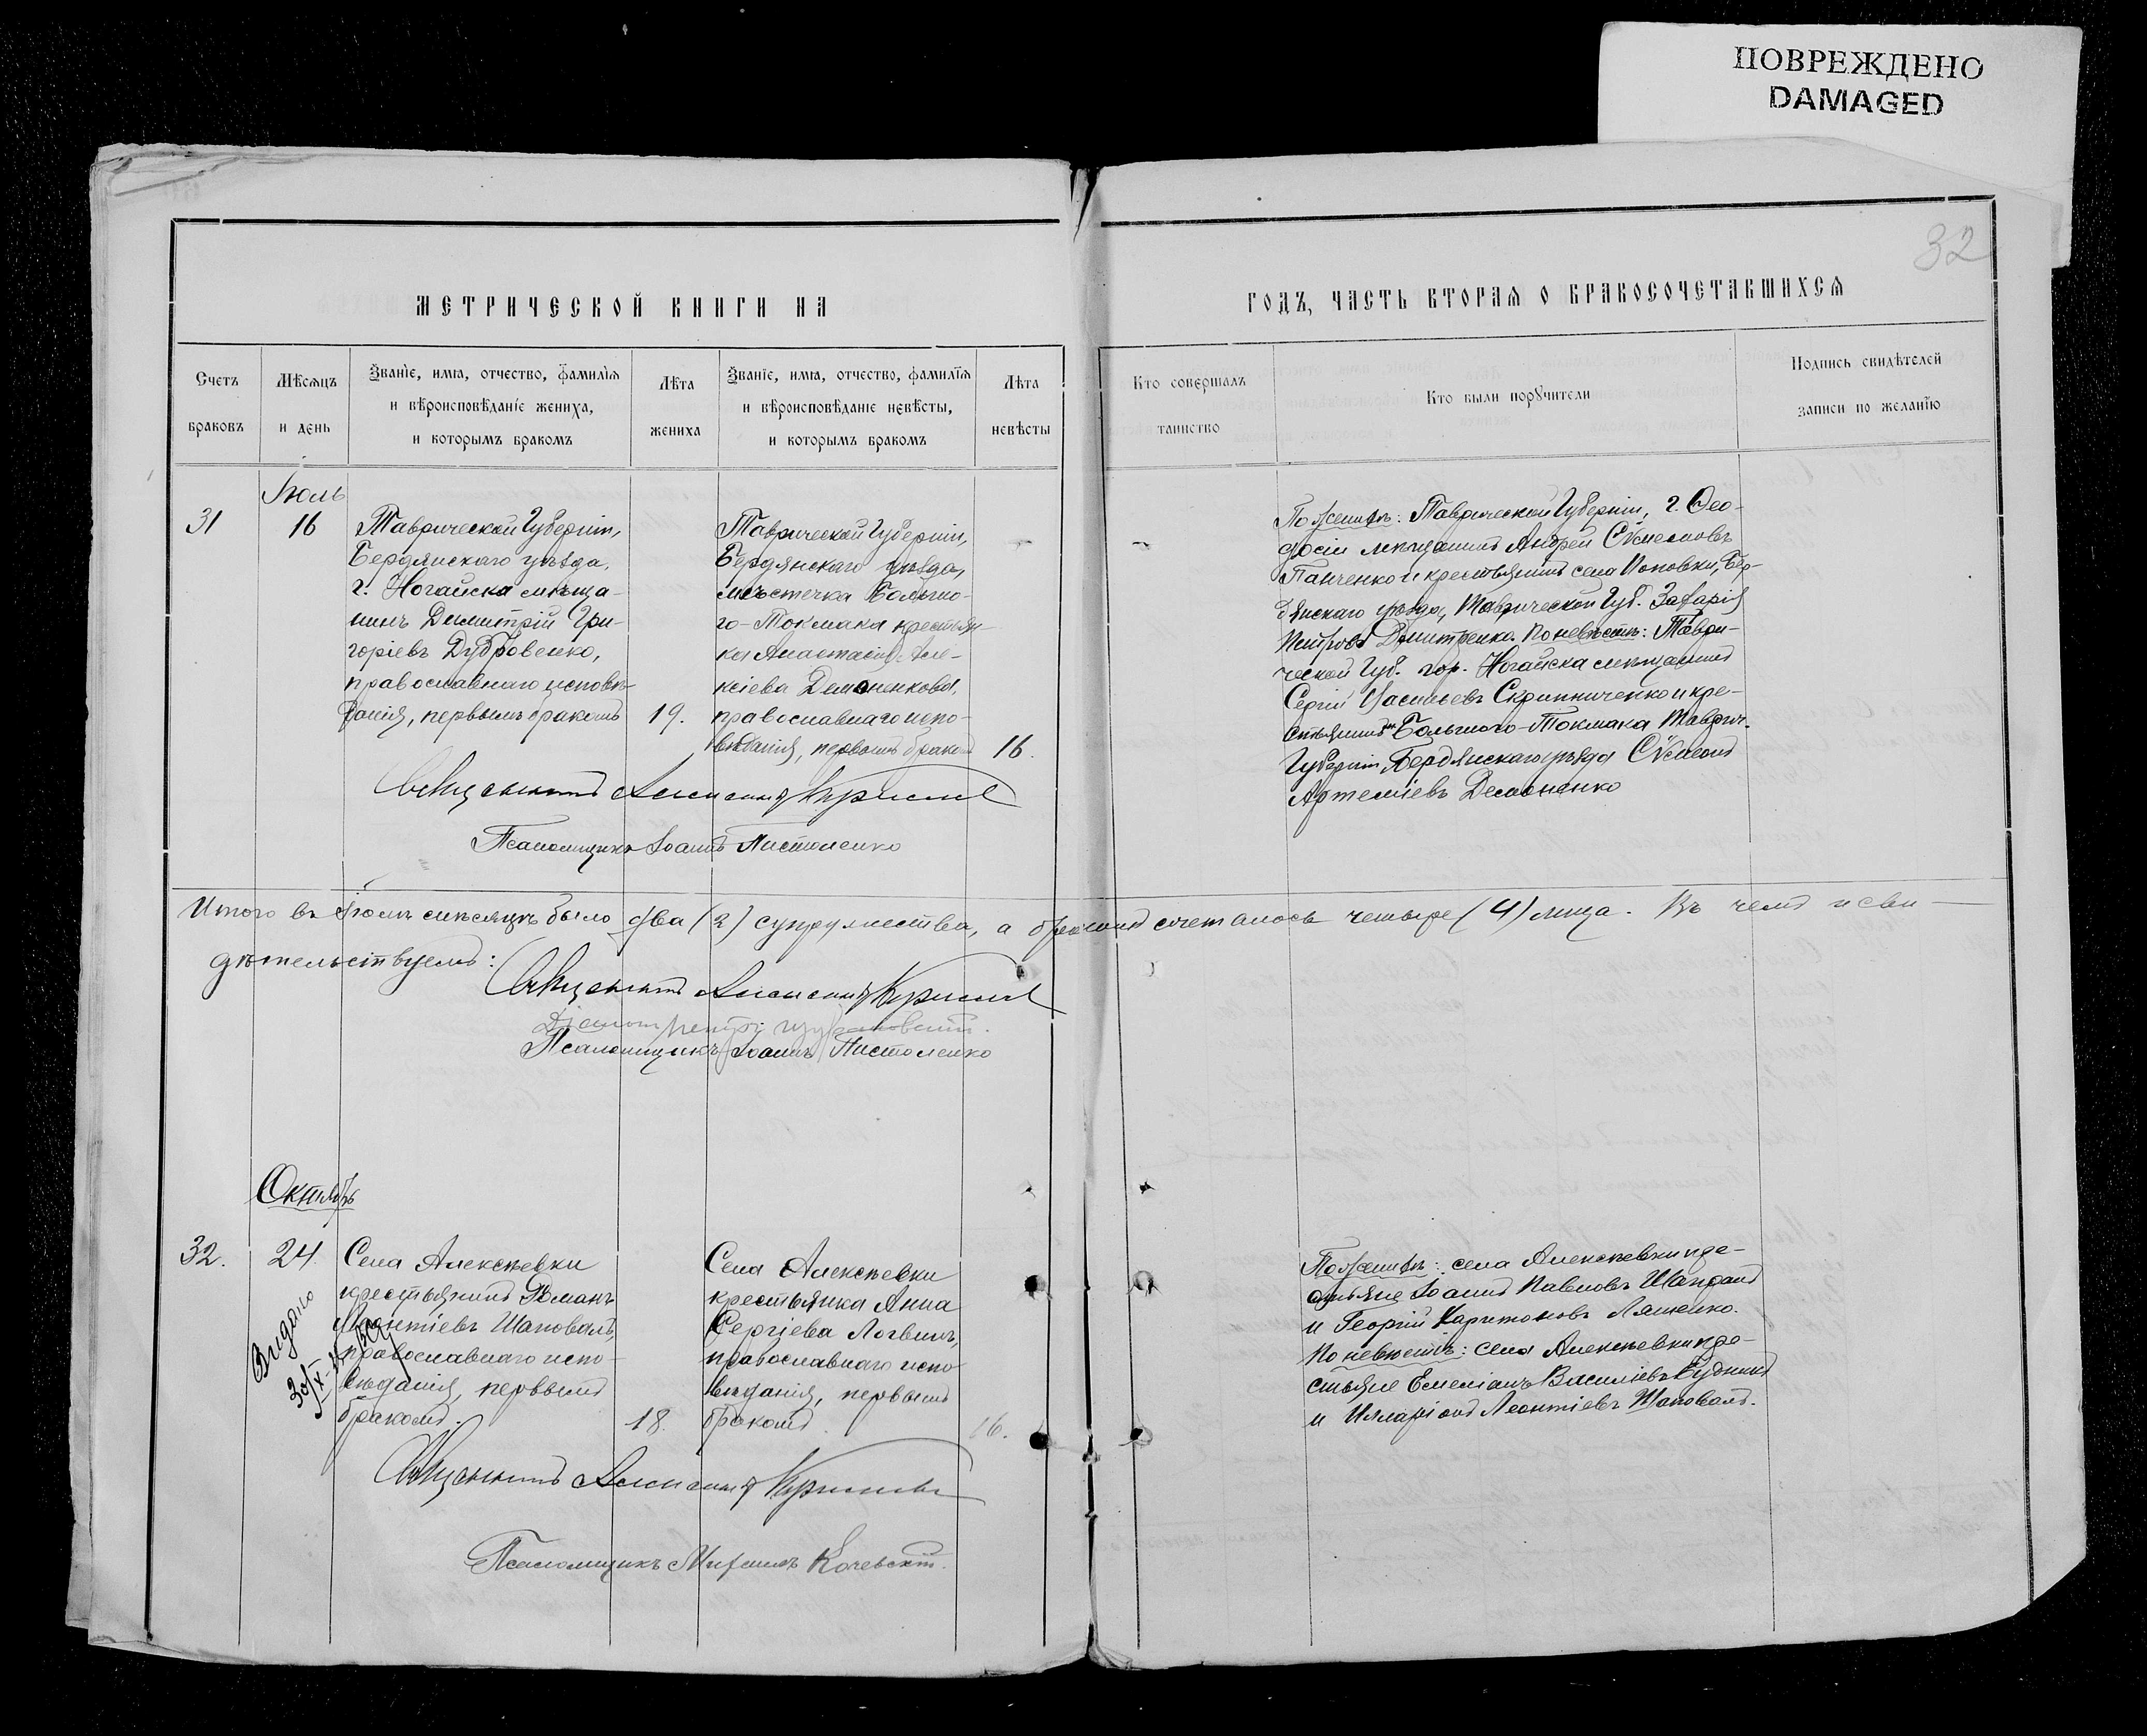 ПОВРЕЖДЕНО
DAMAGED
32
МЕТРИЧЕСКОЙ КНИГИ НА
ГОДЪ, ЧАСТЬ ВТОРАЯ О БРАКОСОЧЕТАВШИХСЯ
Счетъ
браковъ
Мѣсяцъ
и день
Званіе, имя, отчество, фамилія
и вѣроисповѣданіе жениха,
и которымъ бракомъ
Лѣта
жениха
Званіе, имя, отчество, фамилія
и вѣроисповѣданіе невѣсты,
и которымъ бракомъ
Лѣта
невѣсты
Кто совершалъ
таинство
Кто были поручители
Подпись свидѣтелей
записи по желанію
Іюль
31
16
Таврической Губерніи,
Бердянскаго уѣзда,
г. Ногайска мѣща-
нинъ Димитрій Гри-
горіевъ Дубровенко,
православнаго исповѣ-
данія, первымъ бракомъ
19.
Таврической Губерніи,
Бердянскаго уѣзда,
мѣстечка Больша-
го-Токмака крестьян-
ка Анастасія Але-
ксіева Демоненкова,
православнаго испо-
вѣданія, первымъ бракомъ
16.
По женихѣ: Таврической Губерніи, г. Ѳео-
досіи мѣщанинъ Андрей Сѵмеоновъ
Панченко и крестьянинъ села Поповки, Бер-
дянскаго уѣзда, Таврической Губ. Захарія
Петровъ Дмитренко. По невѣстѣ: Таври-
ческой Губ. гор. Ногайска мѣщанинъ
Сергій Васильевъ Скрипниченко и кре-
стьянинъ м. Большого-Токмака Тавричъ.
Губерніи, Бердянскаго уѣзда Сѵмеонъ
Артеміевъ Демоненко
Священникъ Алексій
Псаломщикъ Іоаннъ Пистоленко
Итого въ Іюлѣ мѣсяцѣ было два (2) супружества, а бракомъ сочеталось четыре (4) лица. Въ чемъ и сви-
дѣтельствуемъ:
Священникъ Алексій
Псаломщикъ Іоаннъ Пистоленко
Октябрь
32.
24.
Села Алексѣевки
крестьянинъ Романъ
Леонтіевъ Шаповалъ,
православнаго испо-
вѣданія, первымъ
бракомъ.
18.
Видано
Села Алексѣевки
крестьянка Анна
Сергіева Логвинъ,
православнаго испо-
вѣданія, первымъ
бракомъ.
16.
По женихѣ: села Алексѣевки кре-
стьяне Іоаннъ Павловъ
и Георгій Харитоновъ Ляшенко.
По невѣстѣ: села Алексѣевки кре-
стьяне Емеліанъ Василіевъ Рудникъ
и Илларіонъ Леонтіевъ Шаповалъ.
Священникъ Алексій
Псаломщикъ Михаилъ Кочевскій.